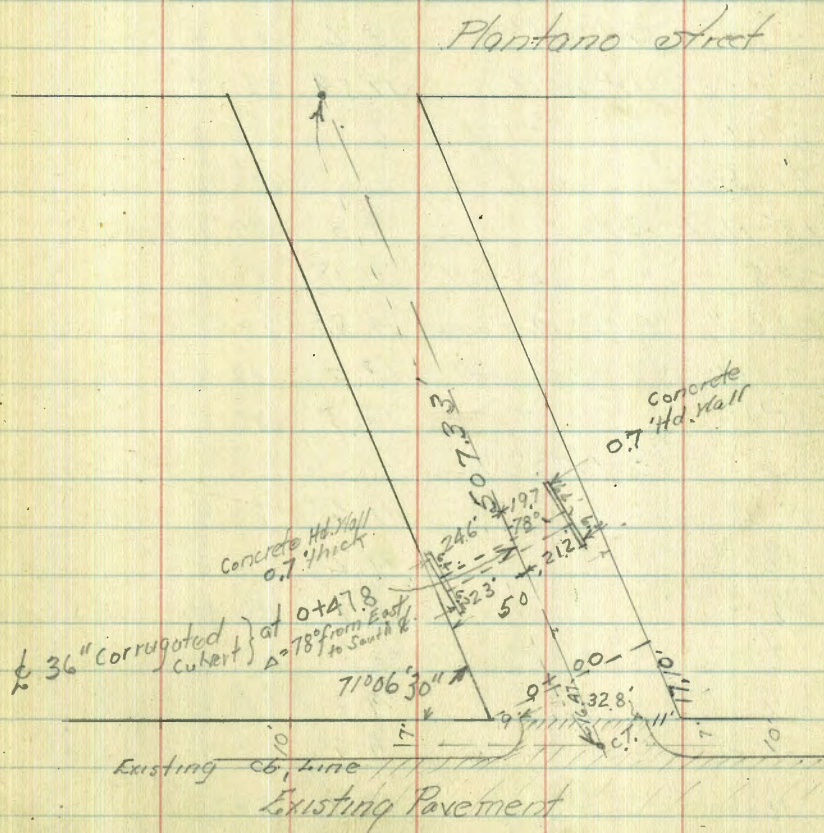 Plantano street
A
507.33
Concrete
0.7' Hd. Wall
19.7
78°
24.6'
21.2'
Concrete Hd. Wall
0.7' thick
23'
50
℄ 36" Corrugated Culvert } at 0+47.8
Δ=78° from East
to South ℄
71°06'30"
0+00
17.10'
16.47
32.8'
9'
11'
C.T.
10'
17'
7'
10'
Existing Cb, Line
Existing Pavement